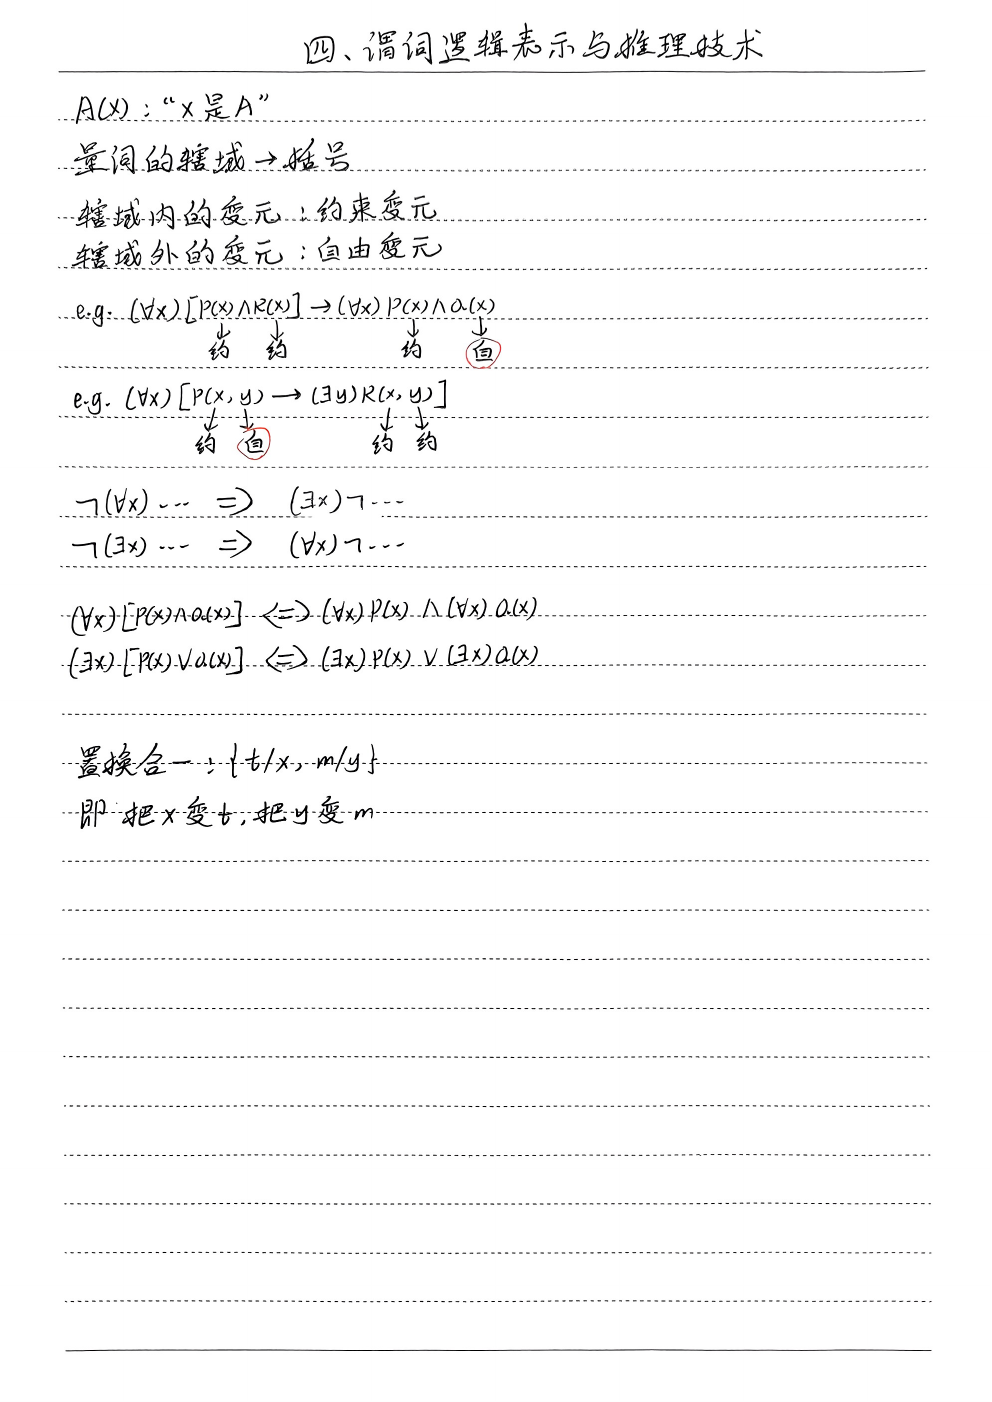 四、谓词逻辑表示与推理技术
A(x)：“x是A”
量词的辖域→括号
辖域内的变元：约束变元
辖域外的变元：自由变元
e.g. (∀x)[P(x)∧R(x)]→(∀x)P(x)∧Q(x)
约 约 约 自
e.g. (∀x)[P(x,y)→(∃y)R(x,y)]
约 自 约 约
¬(∀x)... => (∃x)¬...
¬(∃x)... => (∀x)¬...
(∀x)[P(x)∧Q(x)] <=> (∀x)P(x)∧(∀x)Q(x)
(∃x)[P(x)∨Q(x)] <=> (∃x)P(x)∨(∃x)Q(x)
置换合一：{t/x, m/y}
即 把x变t,把y变m